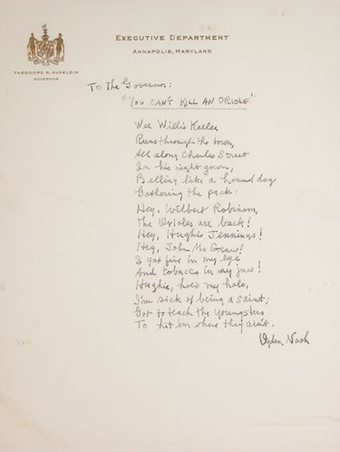 EXECUTIVE DEPARTMENT
ANNAPOLIS, MARYLAND
THEODORE R. McKELDIN
GOVERNOR
To The Governor:
"YOU CAN'T KILL AN ORIOLE"
Wee Willie Keeler
Runs through the town,
All along Charles Street
In his nightgown,
Belling like a hound dog
Gathering the pack:
Hey, Wilbert Robinson,
The Orioles are back!
Hey, Hughie Jennings!
Hey, John McGraw!
I got fire in my eye
And tobacco in my jaw!
Hughie, hold my halo,
I'm sick of being a saint;
Got to teach the Youngsters
To hit 'em where they ain't.
Ogden Nash